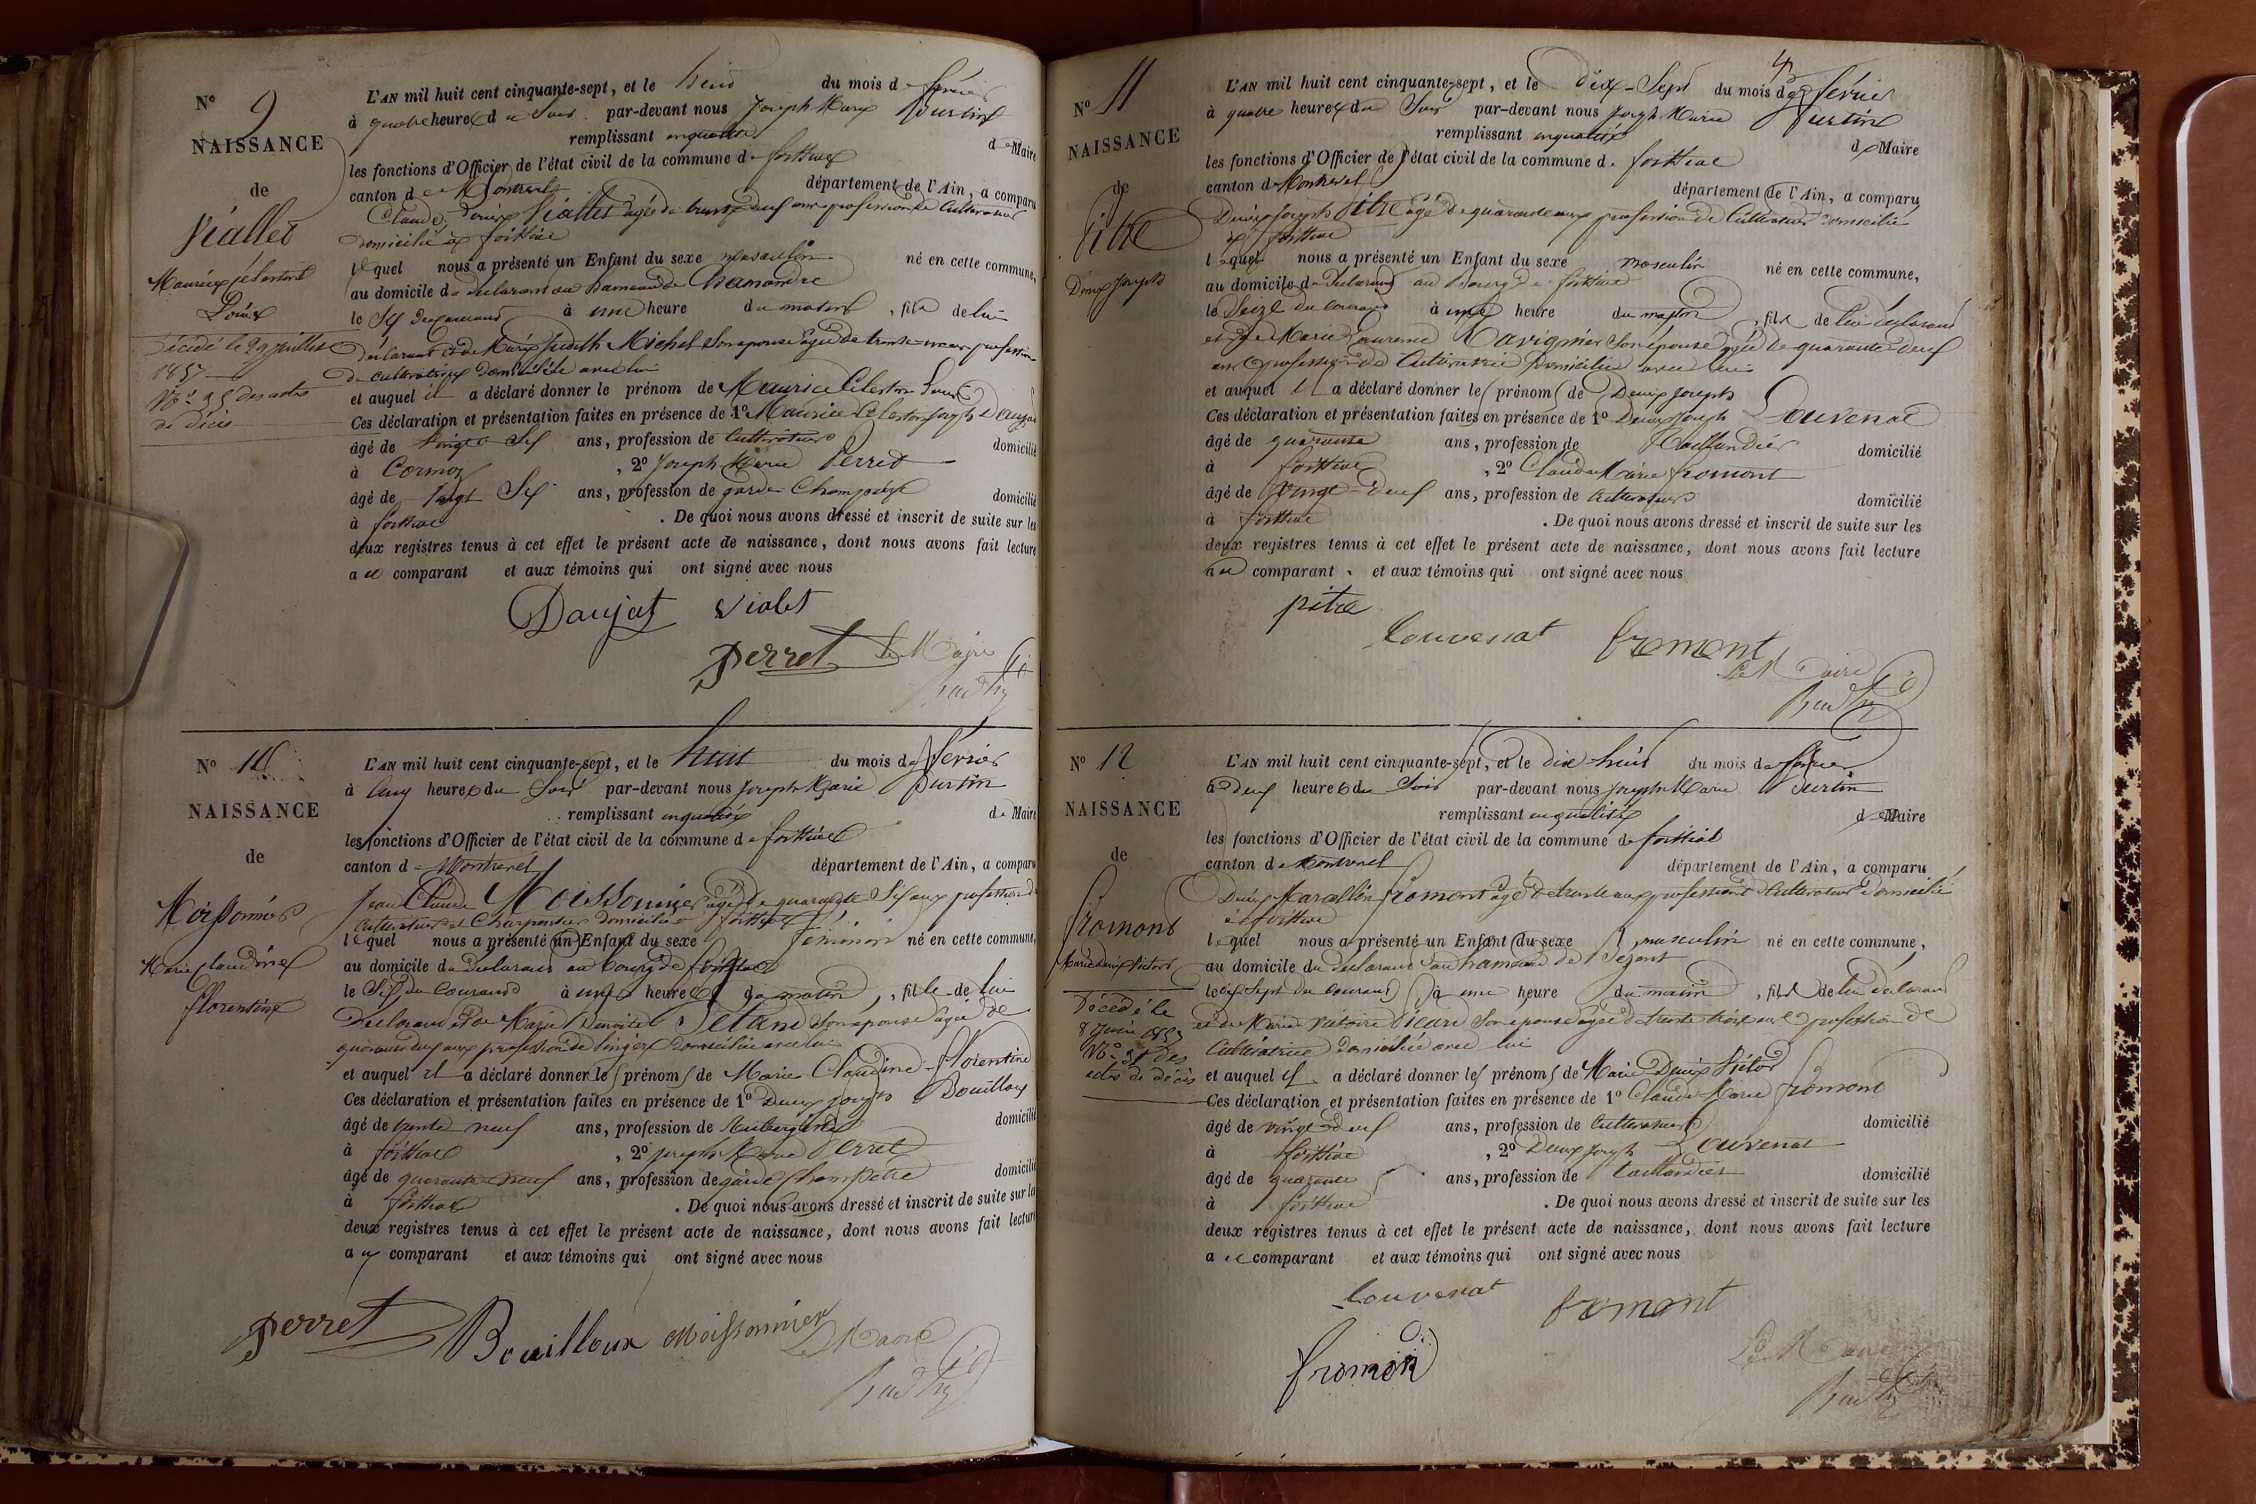 N° 9
NAISSANCE
de
Viallet
Maurice Célestin
Louis
Décédé le 29 juillet
1857
N° 25 des actes
de décès
L'AN mil huit cent cinquante-sept, et le huit du mois de février
à quatre heures du soir par-devant nous Joseph Marie Furtin
remplissant en qualité de Maire
les fonctions d'Officier de l'état civil de la commune de foissiat
canton de Montrevel département de l'Ain, a comparu
Claude Denis Viallet âgé de trente neuf ans profession de Cultivateur
domicilié à foissiat
lequel nous a présenté un Enfant du sexe masculin né en cette commune,
au domicile du déclarant au hameau de
le Six du courant à une heure du matin, fils de lui
déclarant et de Marie Judith Michel son épouse âgée de trente ans profession
de cultivatrice domiciliée avec lui
et auquel il a déclaré donner le prénom de Maurice Célestin Louis
Ces déclaration et présentation faites en présence de 1° Maurice Célestin Joseph Daujat
âgé de vingt Six ans, profession de Cultivateur domicilié
à Cormoz, 2° Joseph Marie Perret
âgé de Six ans, profession de garde Champêtre domicilié
à foissiat. De quoi nous avons dressé et inscrit de suite sur les
deux registres tenus à cet effet le présent acte de naissance, dont nous avons fait lecture
au comparant et aux témoins qui ont signé avec nous
Daujat Violet
Perret Le Maire
N° 10
NAISSANCE
de
Moissonnier
Marie Claudine
florentine
L'AN mil huit cent cinquante-sept, et le huit du mois de février
à cinq heures du soir par-devant nous Joseph Marie Furtin
remplissant en qualité de Maire
les fonctions d'Officier de l'état civil de la commune de foissiat
canton de Montrevel département de l'Ain, a comparu
Jean Claude Moissonnier âgé de quarante Six ans profession de
cultivateur et Charpentier domicilié à foissiat
lequel nous a présenté un Enfant du sexe féminin né en cette commune,
au domicile du déclarant au bourg de foissiat
le Six du courant à une heure du matin, fille de lui
déclarant et de Marie Benoite son épouse âgée de
quarante deux ans profession de lingère domiciliée avec lui
et auquel il a déclaré donner les prénoms de Marie Claudine florentine
Ces déclaration et présentation faites en présence de 1° Denis Joseph Bouilloux
âgé de trente neuf ans, profession de Aubergiste domicilié
à foissiat, 2° Joseph Marie Perret
âgé de quarante neuf ans, profession de garde champêtre domicilié
à foissiat. De quoi nous avons dressé et inscrit de suite sur les
deux registres tenus à cet effet le présent acte de naissance, dont nous avons fait lecture
au comparant et aux témoins qui ont signé avec nous
Perret Bouilloux Moissonnier
Le Maire
N° 11
NAISSANCE
de
Pitre
Denis Joseph
L'AN mil huit cent cinquante-sept, et le dix-Sept du mois de février
à quatre heures du Soir par-devant nous Joseph Marie Furtin
remplissant en qualité de Maire
les fonctions d'Officier de l'état civil de la commune de foissiat
canton de Montrevel département de l'Ain, a comparu
Denis Joseph Pitre âgé de quarante ans profession de Cultivateur domicilié
à foissiat
lequel nous a présenté un Enfant du sexe masculin né en cette commune,
au domicile du déclarant au bourg de foissiat
le Seize du courant à une heure du matin, fils de lui déclarant
et de Marie Laurence Ravignier Son épouse âgée de quarante deux
ans profession de Cultivatrice domiciliée avec lui
et auquel il a déclaré donner les prénoms de Denis Joseph
Ces déclaration et présentation faites en présence de 1° Denis Joseph Louvenat
âgé de quarante ans, profession de taillandier domicilié
à foissiat, 2° Claude Marie fromont
âgé de vingt-deux ans, profession de Cultivateur domicilié
à foissiat. De quoi nous avons dressé et inscrit de suite sur les
deux registres tenus à cet effet le présent acte de naissance, dont nous avons fait lecture
au comparant et aux témoins qui ont signé avec nous
pitre
Louvenat fromont
Le Maire
N° 12
NAISSANCE
de
fromont
Marie Denis Victor
Décédé le
8 Juin 1857
N° 21 des
actes de décès
L'AN mil huit cent cinquante-sept, et le dix huit du mois de février
à Deux heures du Soir par-devant nous Joseph Marie Furtin
remplissant en qualité de Maire
les fonctions d'Officier de l'état civil de la commune de foissiat
canton de Montrevel département de l'Ain, a comparu
Denis Marcellin fromont âgé de trente ans profession de Cultivateur domicilié
à foissiat
lequel nous a présenté un Enfant du sexe masculin né en cette commune,
au domicile du déclarant au hameau de
le dix Sept du courant à une heure du matin, fils de lui déclarant
et de Marie Victoire Son épouse âgée de trente trois ans profession de
Cultivatrice domiciliée avec lui
et auquel il a déclaré donner les prénoms de Marie Denis Victor
Ces déclaration et présentation faites en présence de 1° Claude Marie fromont
âgé de vingt deux ans, profession de Cultivateur domicilié
à foissiat, 2° Denis Joseph Louvenat
âgé de quarante ans, profession de taillandier domicilié
à foissiat. De quoi nous avons dressé et inscrit de suite sur les
deux registres tenus à cet effet le présent acte de naissance, dont nous avons fait lecture
au comparant et aux témoins qui ont signé avec nous
Louvenat fromont
fromont
Le Maire